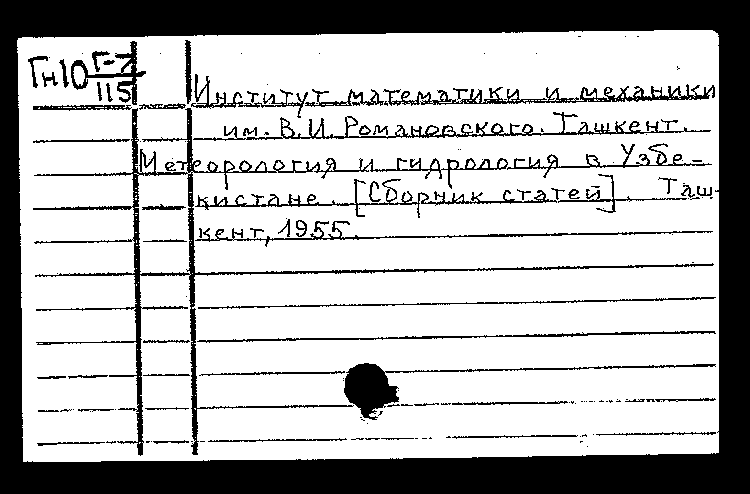 Гн10 Г-7
115
Институт математики и механики
им. В.И. Романовского. Ташкент.
Метеорология и гидрология в Узбе-
кистане. [Сборник статей]. Таш-
кент, 1955.